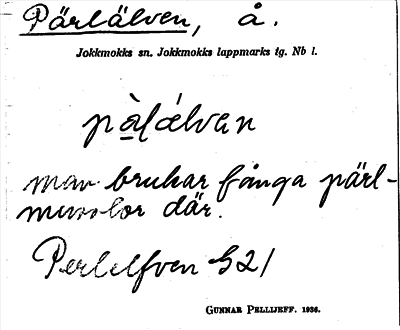 Pärlälven, å.
Jokkmokks sn. Jokkmokks lappmarks tg. Nb l.
pàlä́lvan
man brukar fånga pärl-
musslor där.
Perlelfven G21
GUNNAR PELLIJEFF. 1936.